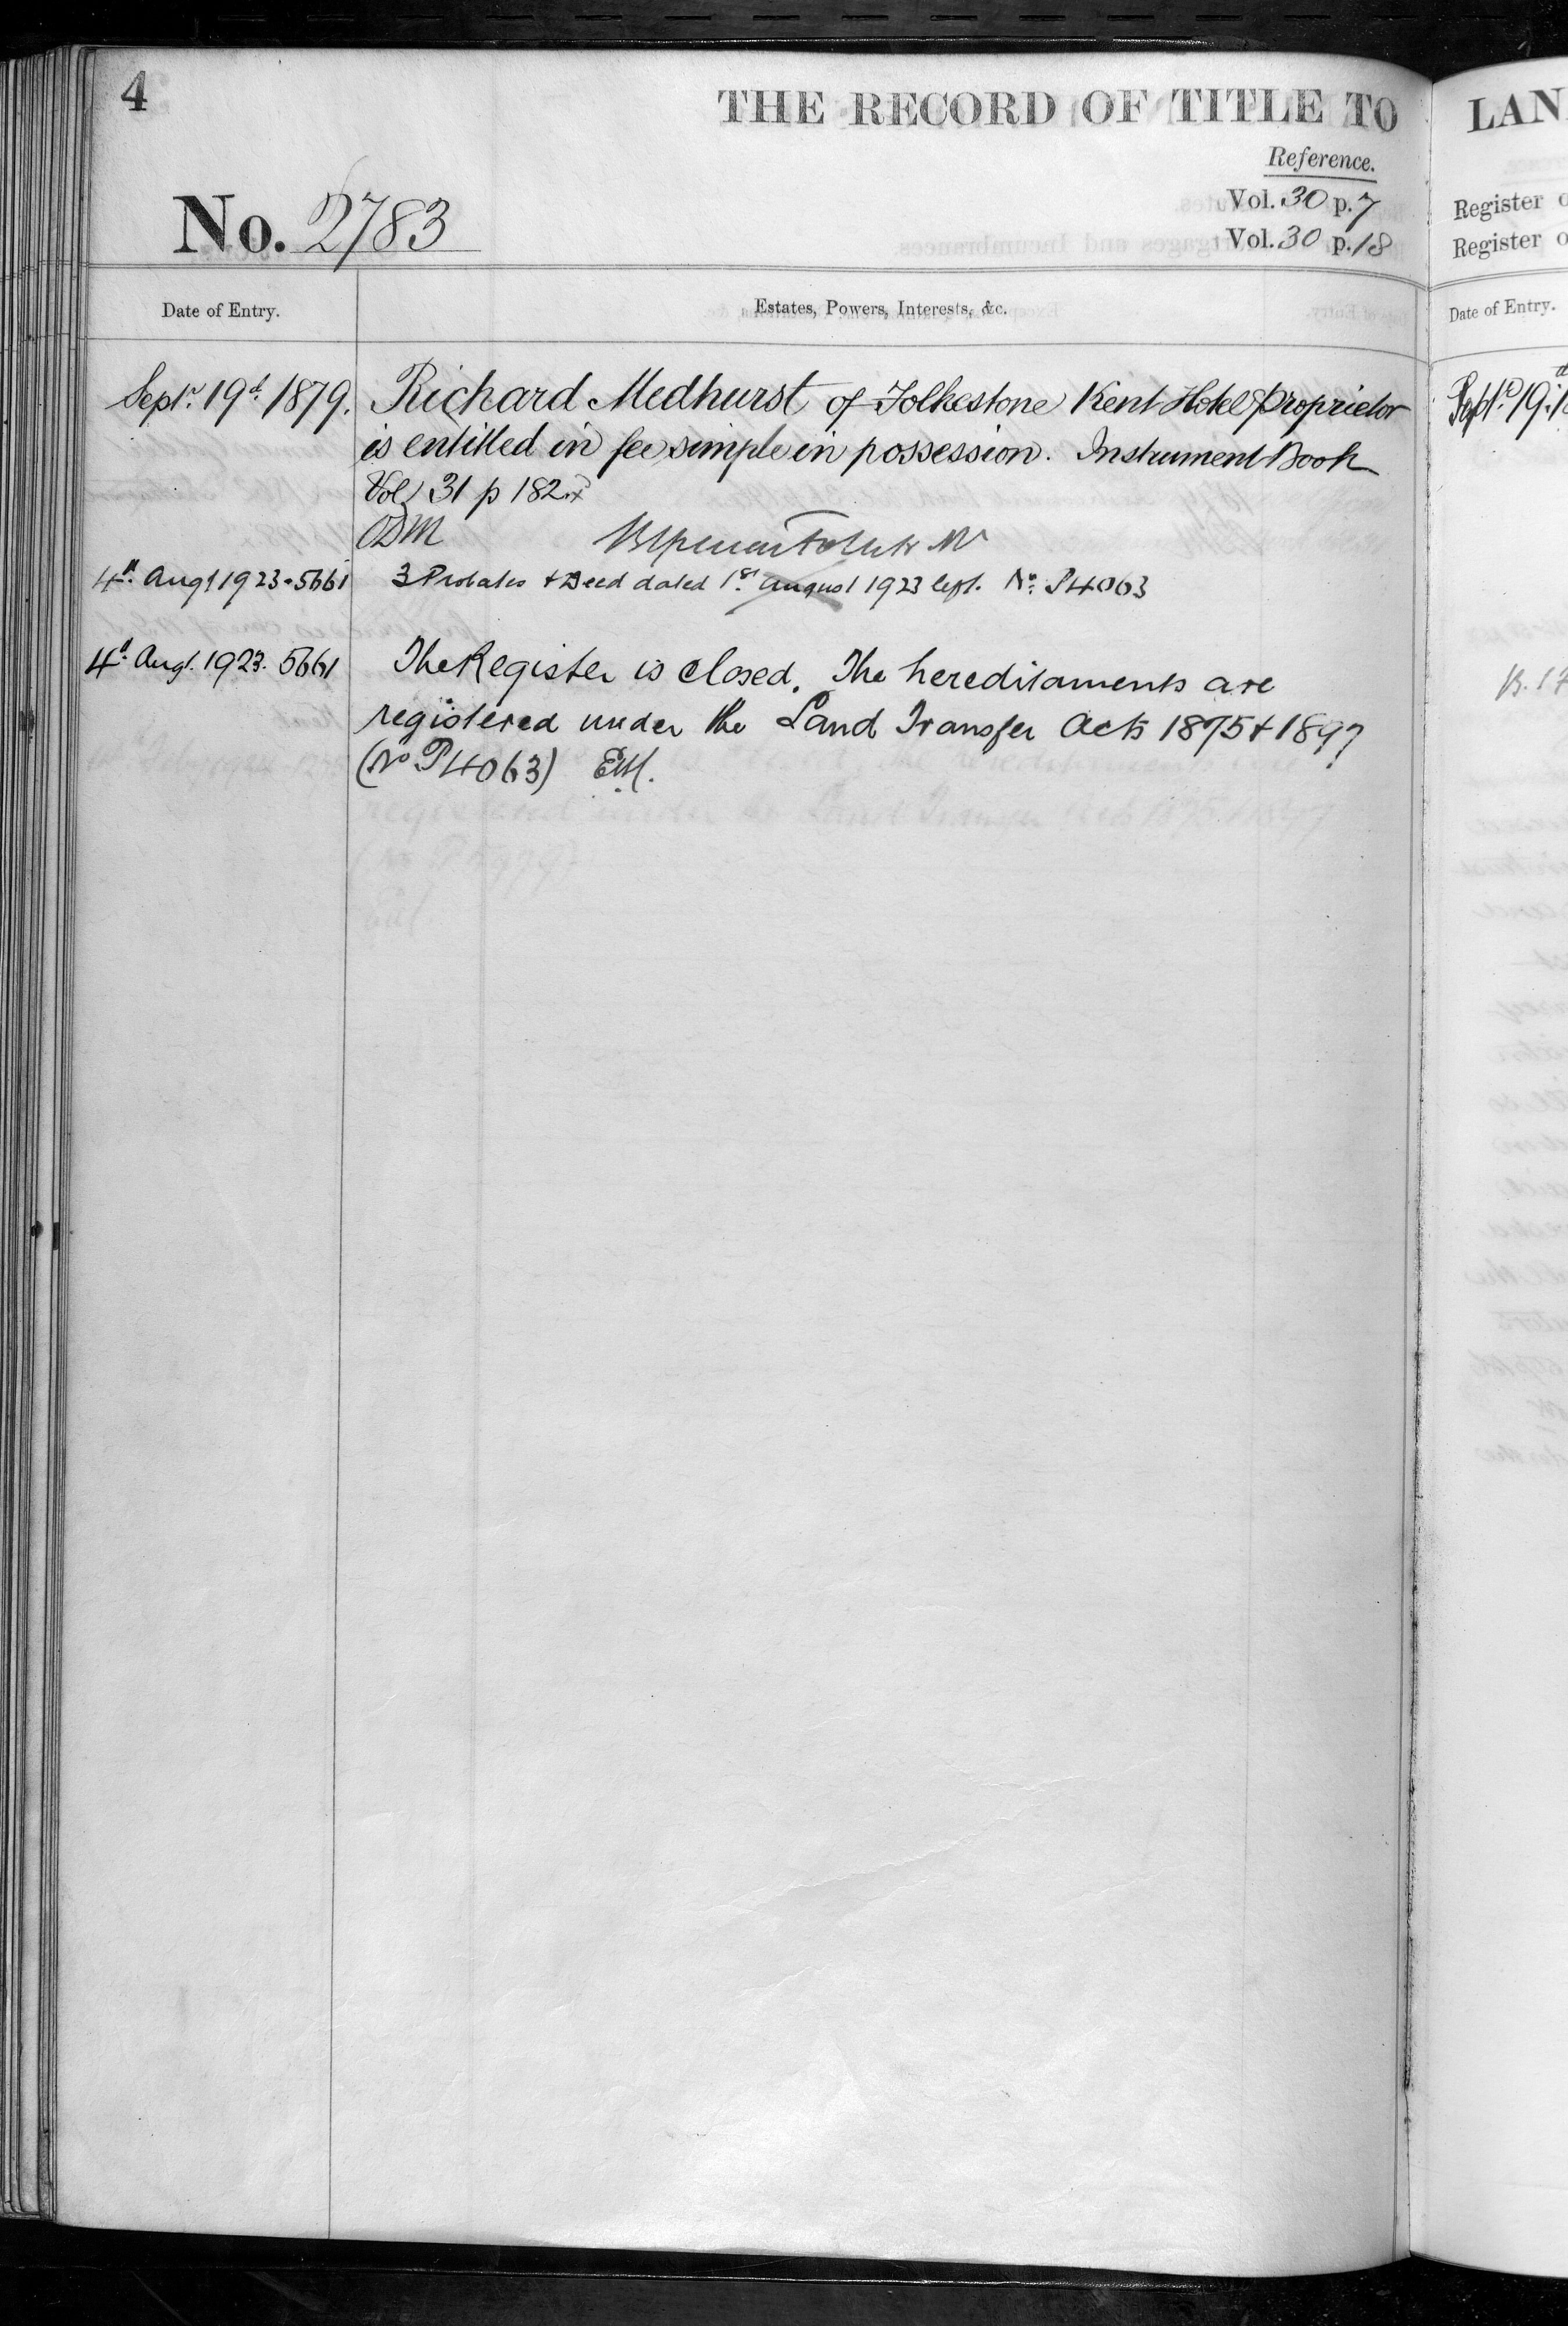 4
THE RECORD OF TITLE TO
Reference.
No. 2783
Vol. 30 p. 7
Vol. 30 p. 18
Date of Entry.
Estates, Powers, Interests, &c.
Septr. 19th 1879.
Richard Medhurst of Folkestone Kent Hotel Proprietor
is entitled in fee simple in possession. Instrument Book
Vol 31 p 182
4th. Augt 1923 - 5661
3 Probates + Deed dated 1st. August 1923 left. No. P4063
4th. Augt. 1923. 5661
The Register is closed. The hereditaments are
registered under the Land Transfer Acts 1875 + 1897
(No P4063)
LAN
Register
Register
Date of Entry.
Septr. 19th